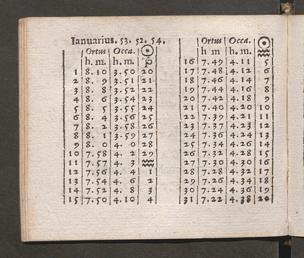 Ianuarius. 53. 52. 54.
Ortus Occa. ☉
h. m. h. m. ♑
1 8. 10 3. 50 20
2 8. 9 3. 51 21
3 8. 8 3. 52 22
4 8. 6 3. 54 23
5 8. 5 3. 55 24
6 8. 4 3. 56 25
7 8. 2 3. 58 26
8 8. 1 3. 59 27
9 8. 0 4. 0 28
10 7. 58 4. 2 29
11 7. 57 4. 3 ♒
12 7. 56 4. 4 1
13 7. 54 4. 6 2
14 7. 52 4. 8 3
15 7. 50 4. 10 4
Ortus Occa. ☉
h m h. m. ♒
16 7. 49 4. 11 5
17 7. 46 4. 14 6
18 7. 44 4. 16 7
19 7. 44 4. 16 8
20 7. 42 4. 18 9
21 7. 40 4. 20 10
22 7. 39 4. 21 11
23 7. 37 4. 23 12
24 7. 36 4. 24 13
25 7. 34 4. 26 14
26 7. 32 4. 28 15
27 7. 30 4. 30 16
28 7. 28 4. 32 17
29 7. 26 4. 34 18
30 7. 24 4. 36 19
31 7. 22 4. 38 20